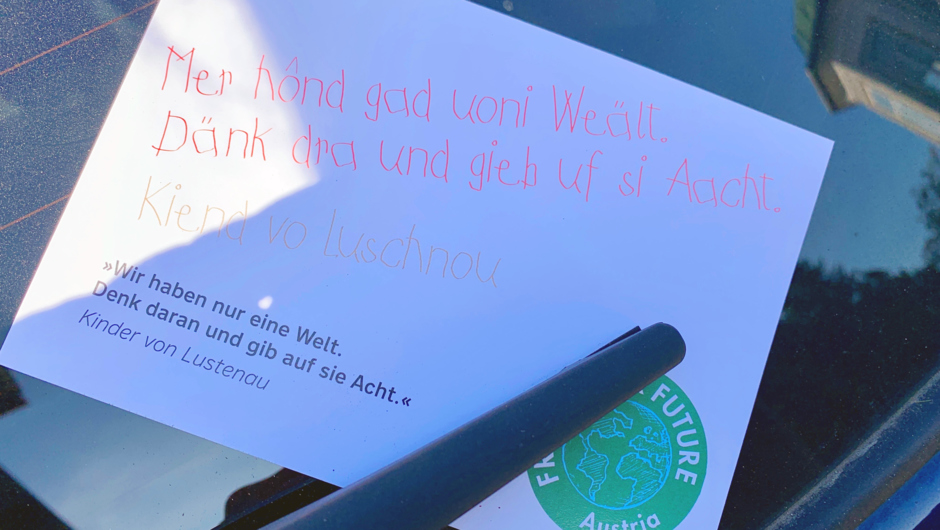 Mer hônd gad uoni Weält.
Dänk dra und gieb uf si Aacht.
Kiend vo Luschnou
»Wir haben nur eine Welt.
Denk daran und gib auf sie Acht.«
Kinder von Lustenau
FUTURE
Austria